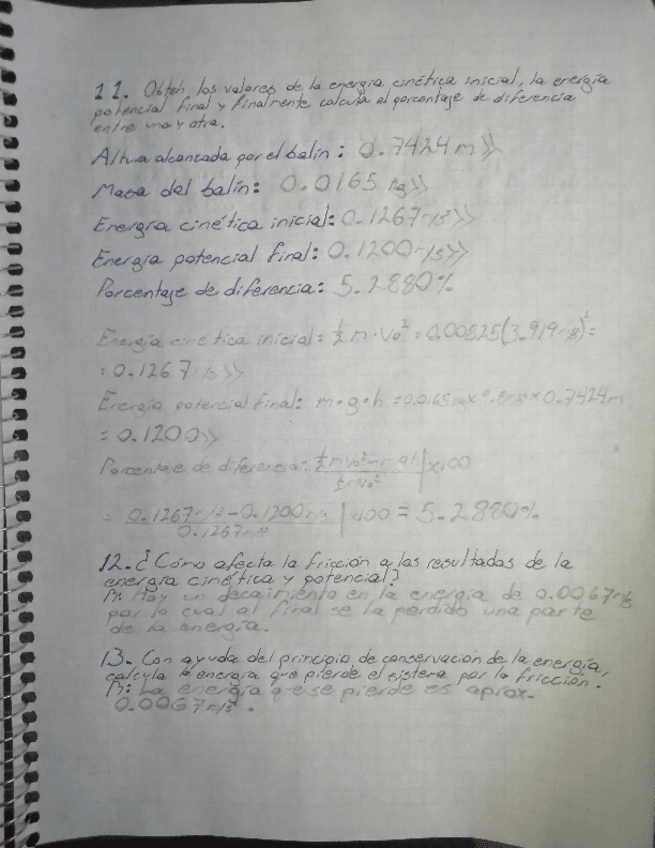 11. Obtén los valores de la energía cinética inicial, la energía
potencial final y finalmente calcula el porcentaje de diferencia
entre una y otra.
Altura alcanzada por el balín: 0.7424 m»
Masa del balín: 0.0165 kg»
Energía cinética inicial: 0.1267 m/s»
Energía potencial final: 0.1200 m/s»
Porcentaje de diferencia: 5.2880%
Energía cinética inicial = ½ m·V₀² = 0.00825(3.919 m/s)² =
= 0.1267 m/s»
Energía potencial final: m·g·h = 0.0165 kg × 9.8 m/s² × 0.7424m
= 0.1200»
Porcentaje de diferencia: ½mv₀² - mgh / ½mv₀² | ×100
= 0.1267 m/s - 0.1200 m/s / 0.1267 m/s | ×100 = 5.2880%
12. ¿Cómo afecta la fricción a los resultados de la
energía cinética y potencial?
R: Hay un decaimiento en la energía de 0.0067 m/s
por lo cual al final se ha perdido una parte
de la energía.
13. Con ayuda del principio de conservación de la energía,
calcula la energía que pierde el sistema por la fricción.
R: La energía que se pierde es aprox.
0.0067 m/s.